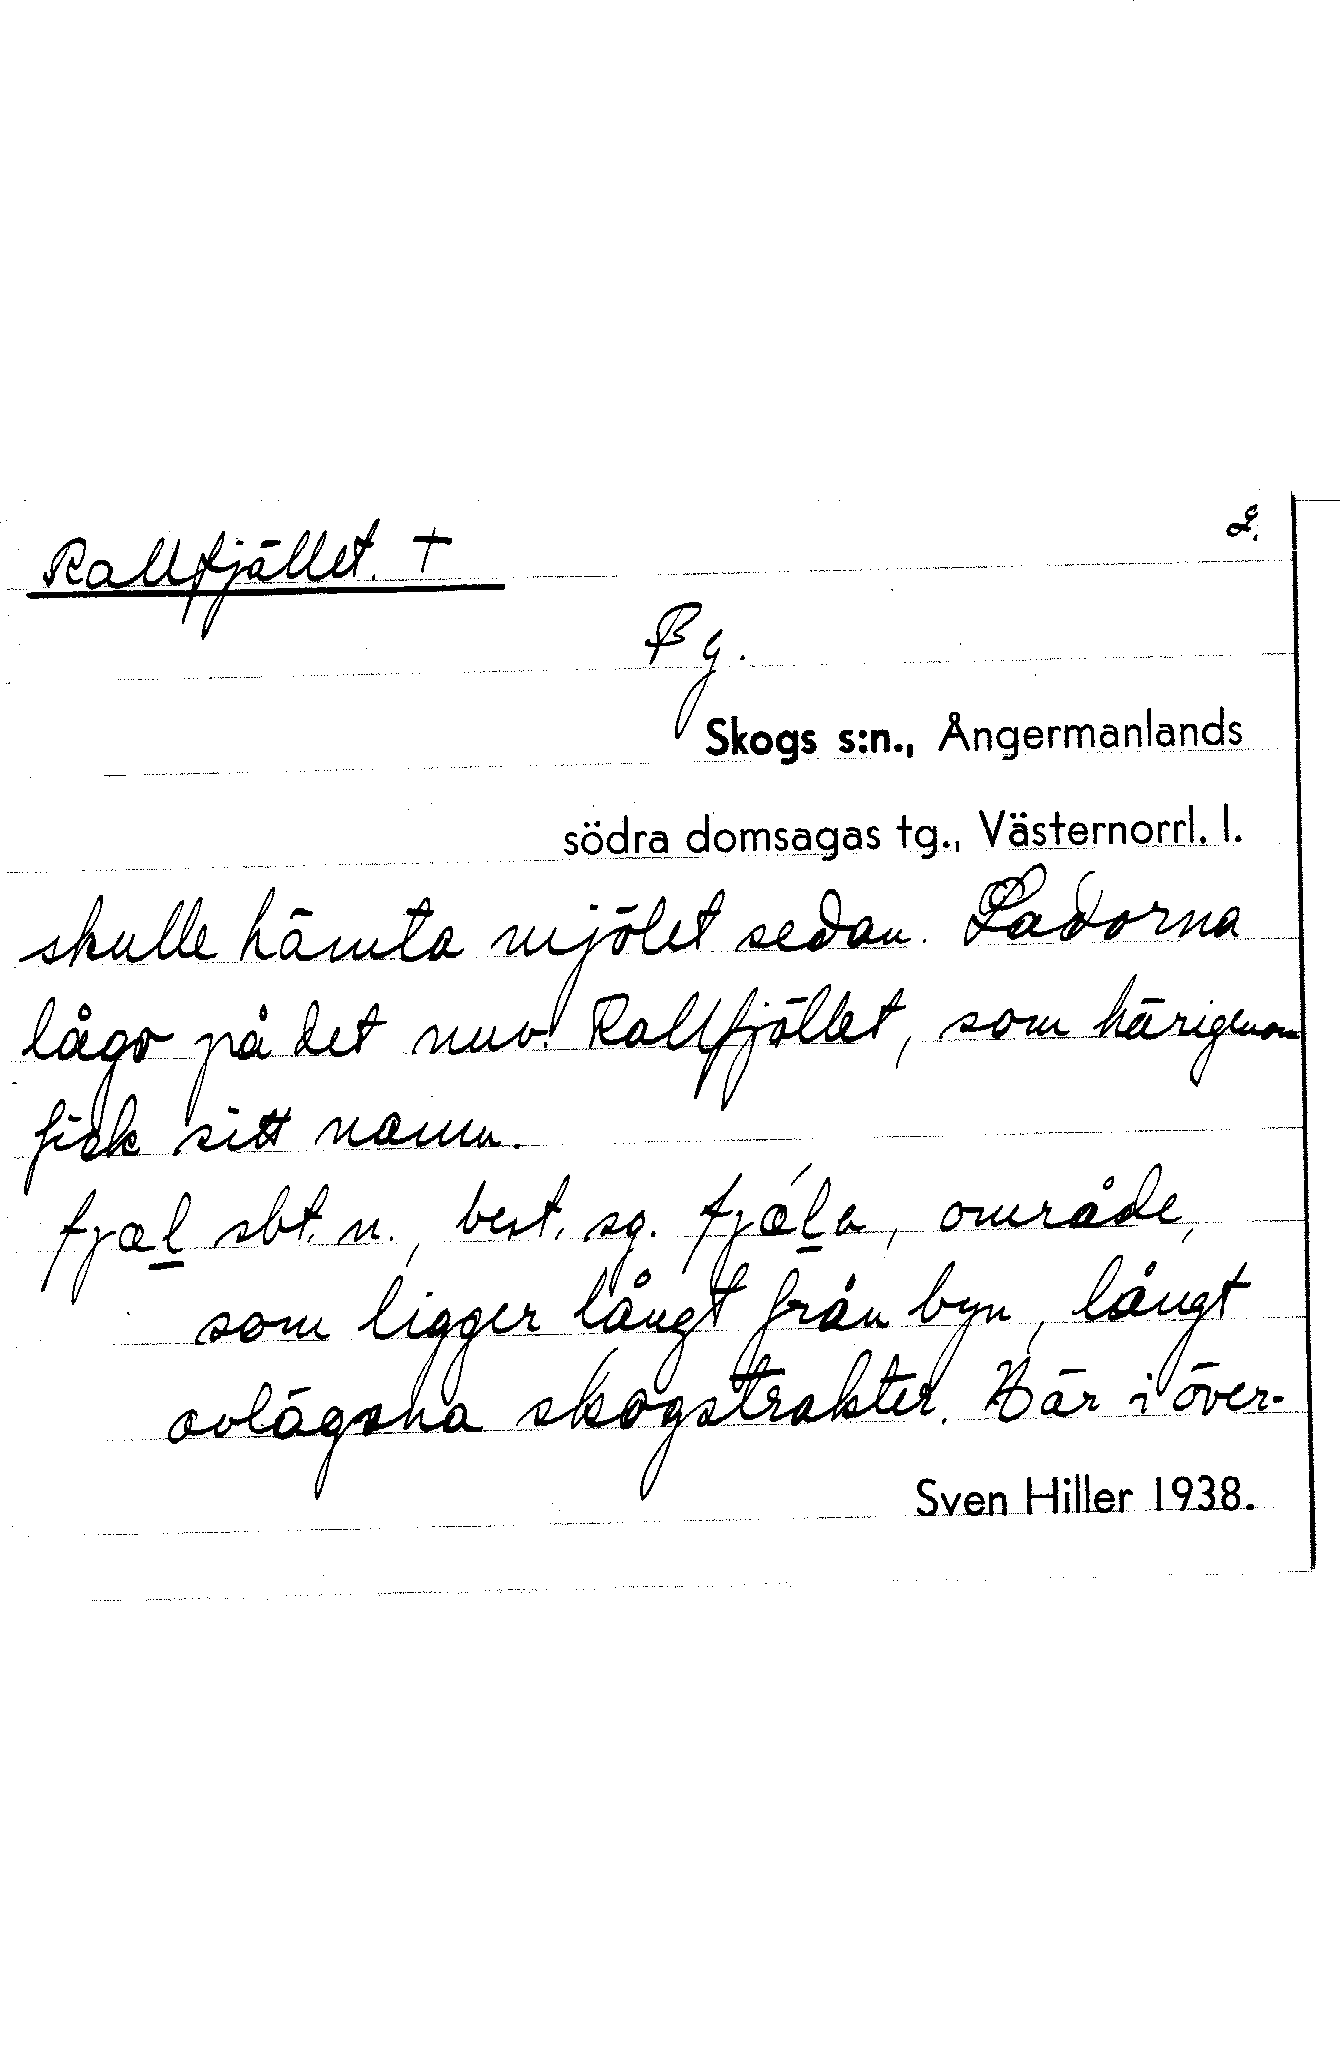 Rallfjället. +
2.
Bg.
Skogs s:n., Ångermanlands
södra domsagas tg., Västernorrl. l.
skulle hämta mjölet sedan. Ladorna
lågo på det nuv. Rallfjället, som härigenom
fick sitt namn.
fjæl sbt. n., best. sg. fjǽla, område,
som ligger långt från byn, långt
avlägsna skogstrakter. Här i över-
Sven Hiller 1938.